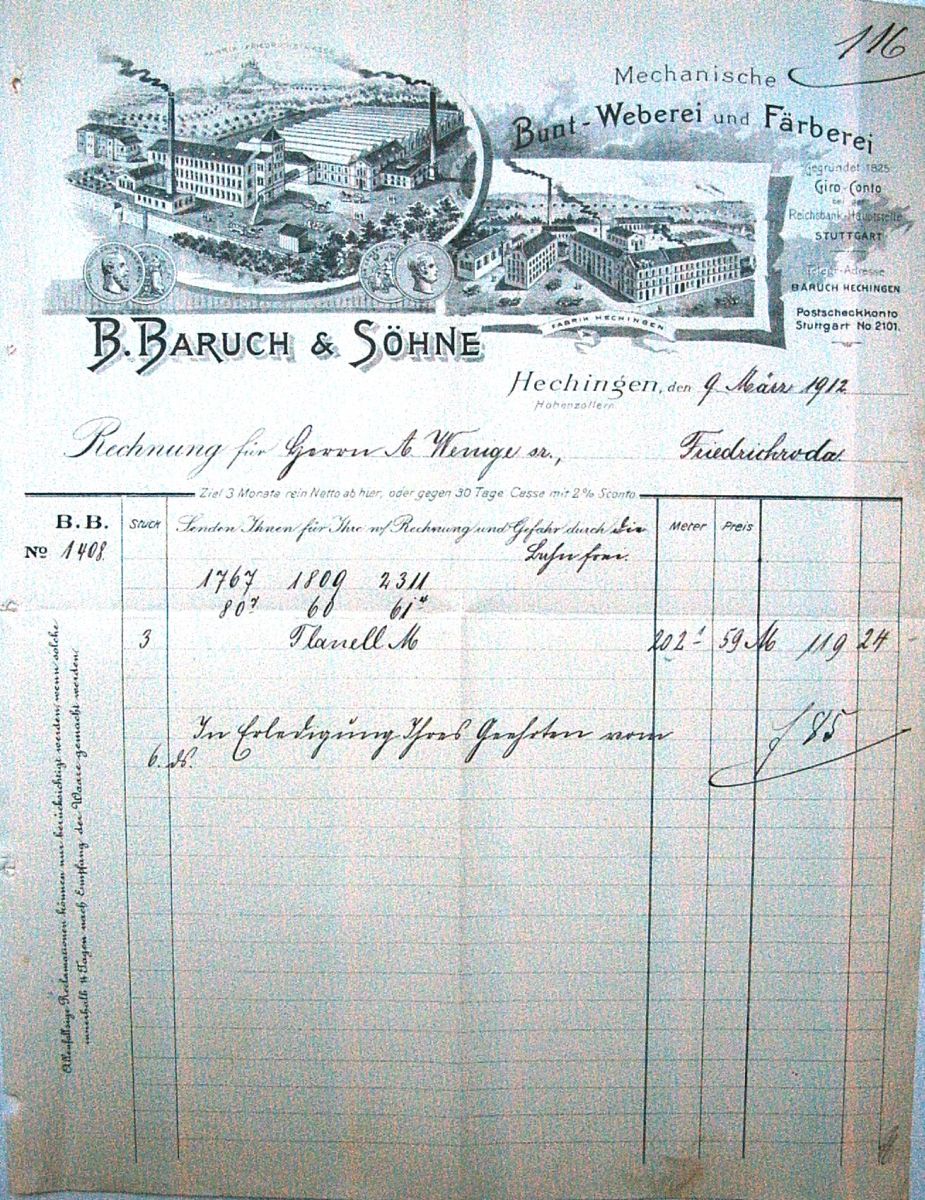 116
FABRIK FRIEDRICHSTRASSE
Mechanische
Bunt-Weberei und Färberei
Gegründet 1825
Giro-Conto
bei der
Reichsbank-Hauptstelle
STUTTGART
Telegr.-Adresse
BARUCH HECHINGEN
Postscheckkonto
Stuttgart No 2101.
FABRIK HECHINGEN
B. BARUCH & SÖHNE
Hechingen, den 9 März 1912
Hohenzollern.
Rechnung für Herrn A. Wenige sr., Friedrichroda.
Ziel 3 Monate rein Netto ab hier, oder gegen 30 Tage Casse mit 2% Sconto.
B.B. Stück Senden Ihnen für Ihre w/ Rechnung und Gefahr durch die Meter Preis
No 1408 Bahn frei.
1767 1809 2311
80⁷ 60 61⁴
3 Flanell M 202¹ 59 M 119 24
In Erledigung Ihres Geehrten vom
6. ds.
f 85
Allenfallsige Reclamationen können nur berücksichtigt werden, wenn solche
innerhalb 8 Tagen nach Empfang der Waare gemacht werden.